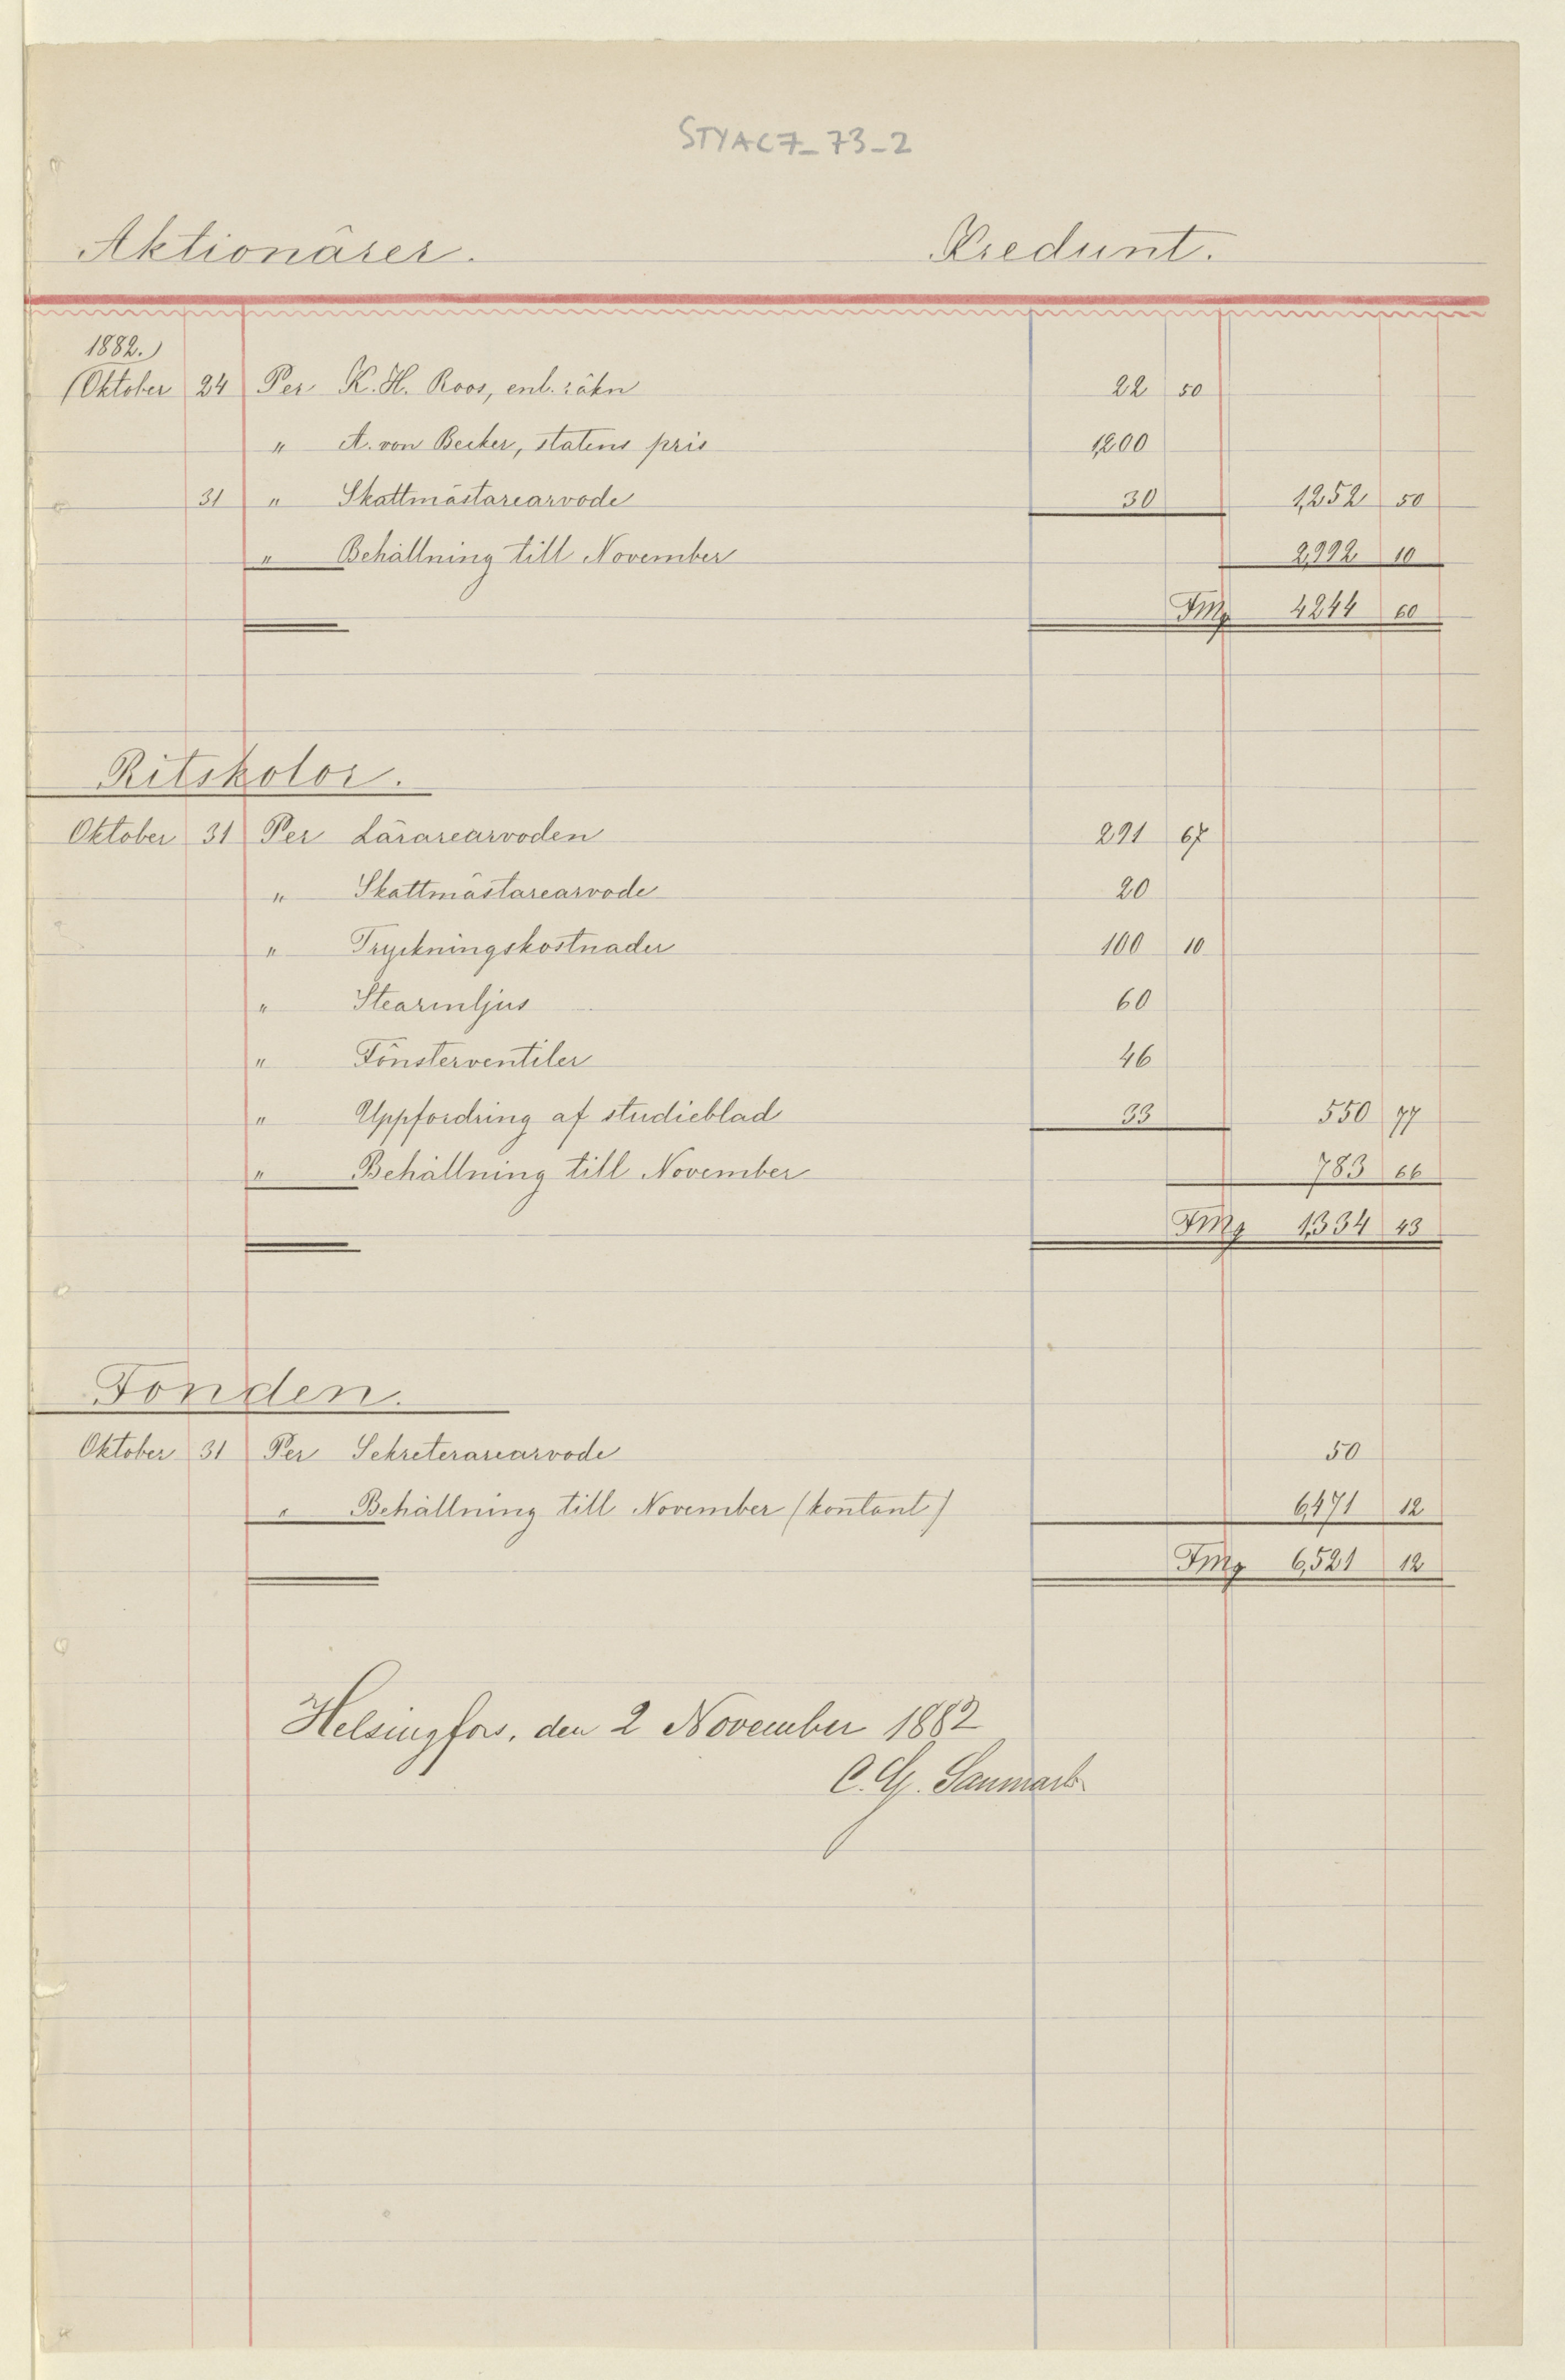 STYAC7_73_2
Aktionärer. Kredunt.
1882.)
(Oktober 24 Per K. H. Roos, enl. räkn 22 50
" A. von Becker, statens pris 1,200
31 " Skattmästarearvode 30 1,252 50
" Behållning till November 2,992 10
Fmg 4244 60
Ritskolor.
Oktober 31 Per Lärarearvoden 291 67
" Skattmästarearvode 20
" Tryckningskostnader 100 10
" Stearinljus 60
" Fönsterventiler 46
" Uppfordring af studieblad 33 550 77
" Behållning till November 783 66
Fmg 1,334 43
Fonden.
Oktober 31 Per Sekreterarearvode 50
" Behållning till November (kontant) 6,471 12
Fmg 6,521 12
Helsingfors, den 2 November 1882
C. G. Sanmark